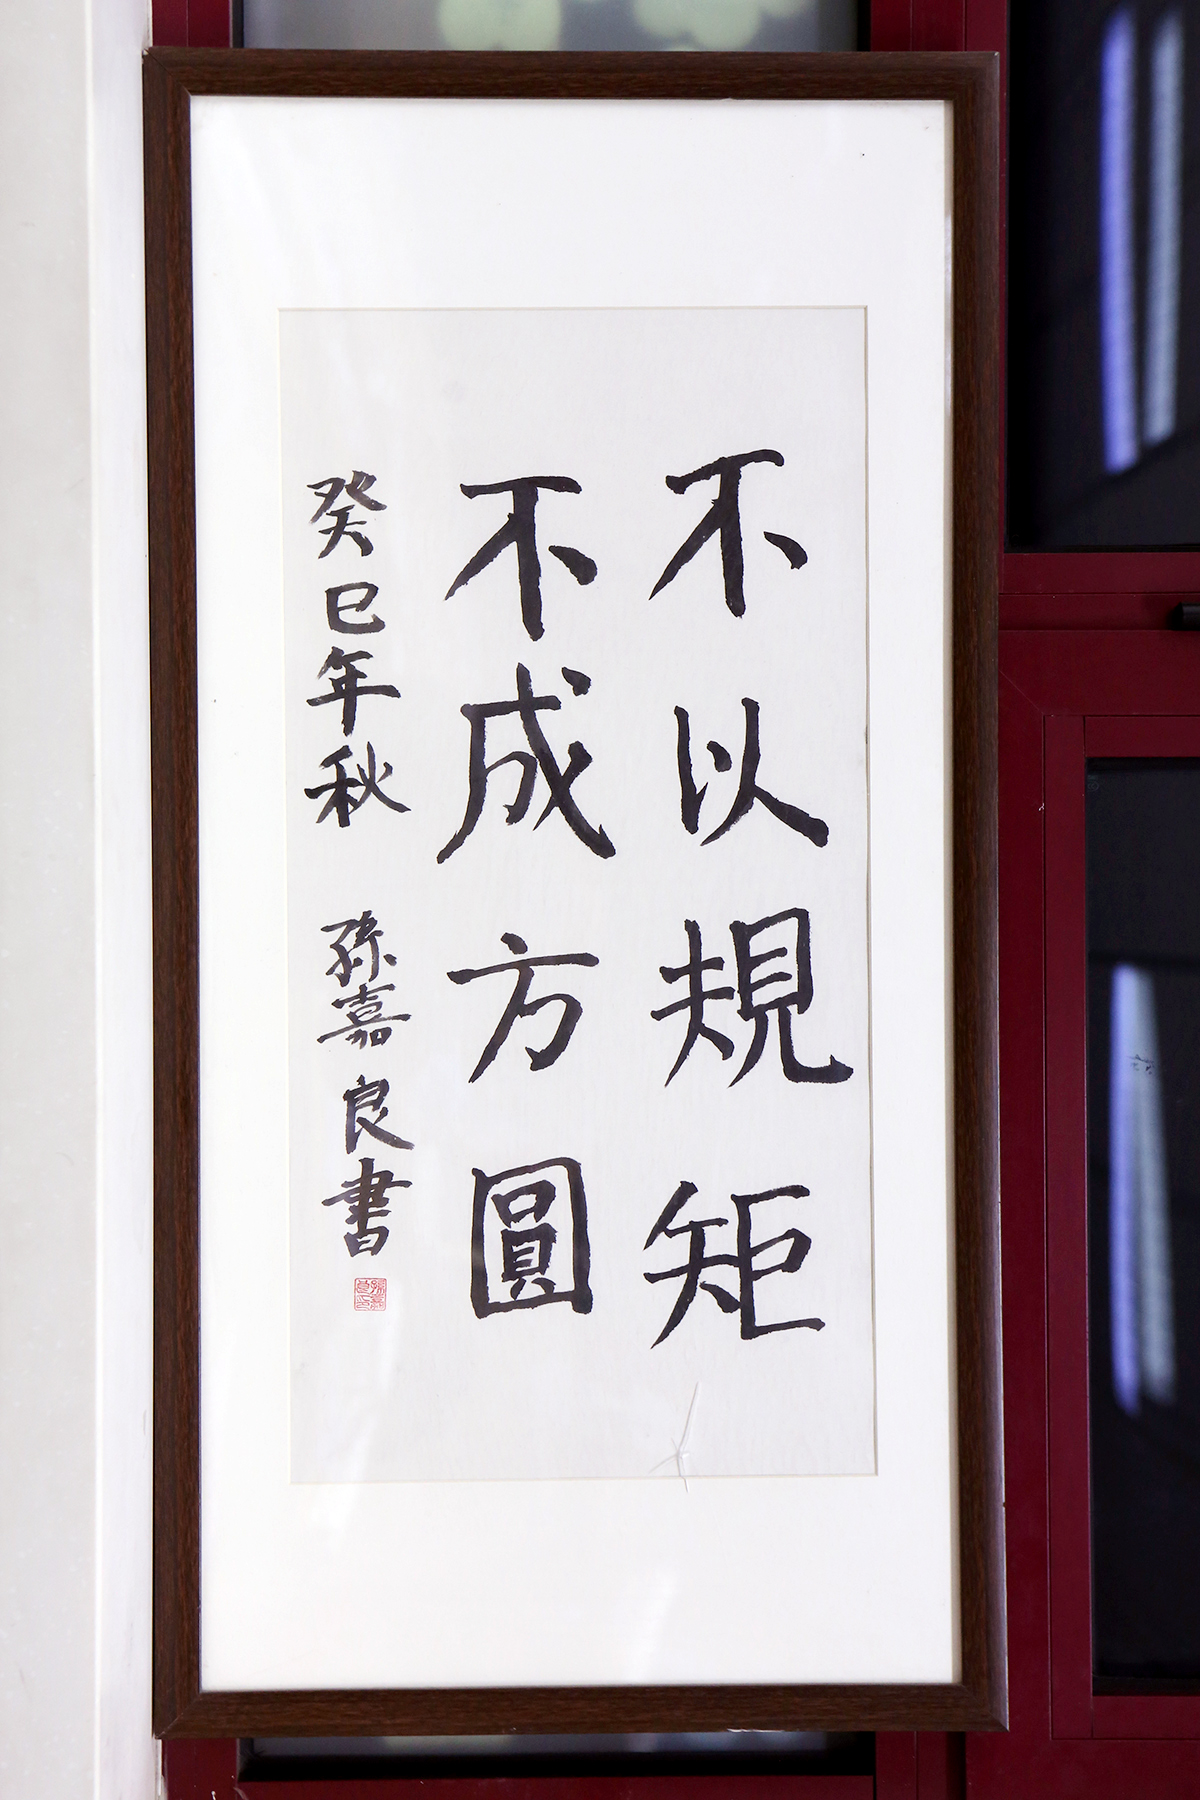 不以規矩
不成方圓
癸巳年秋 孫嘉良書